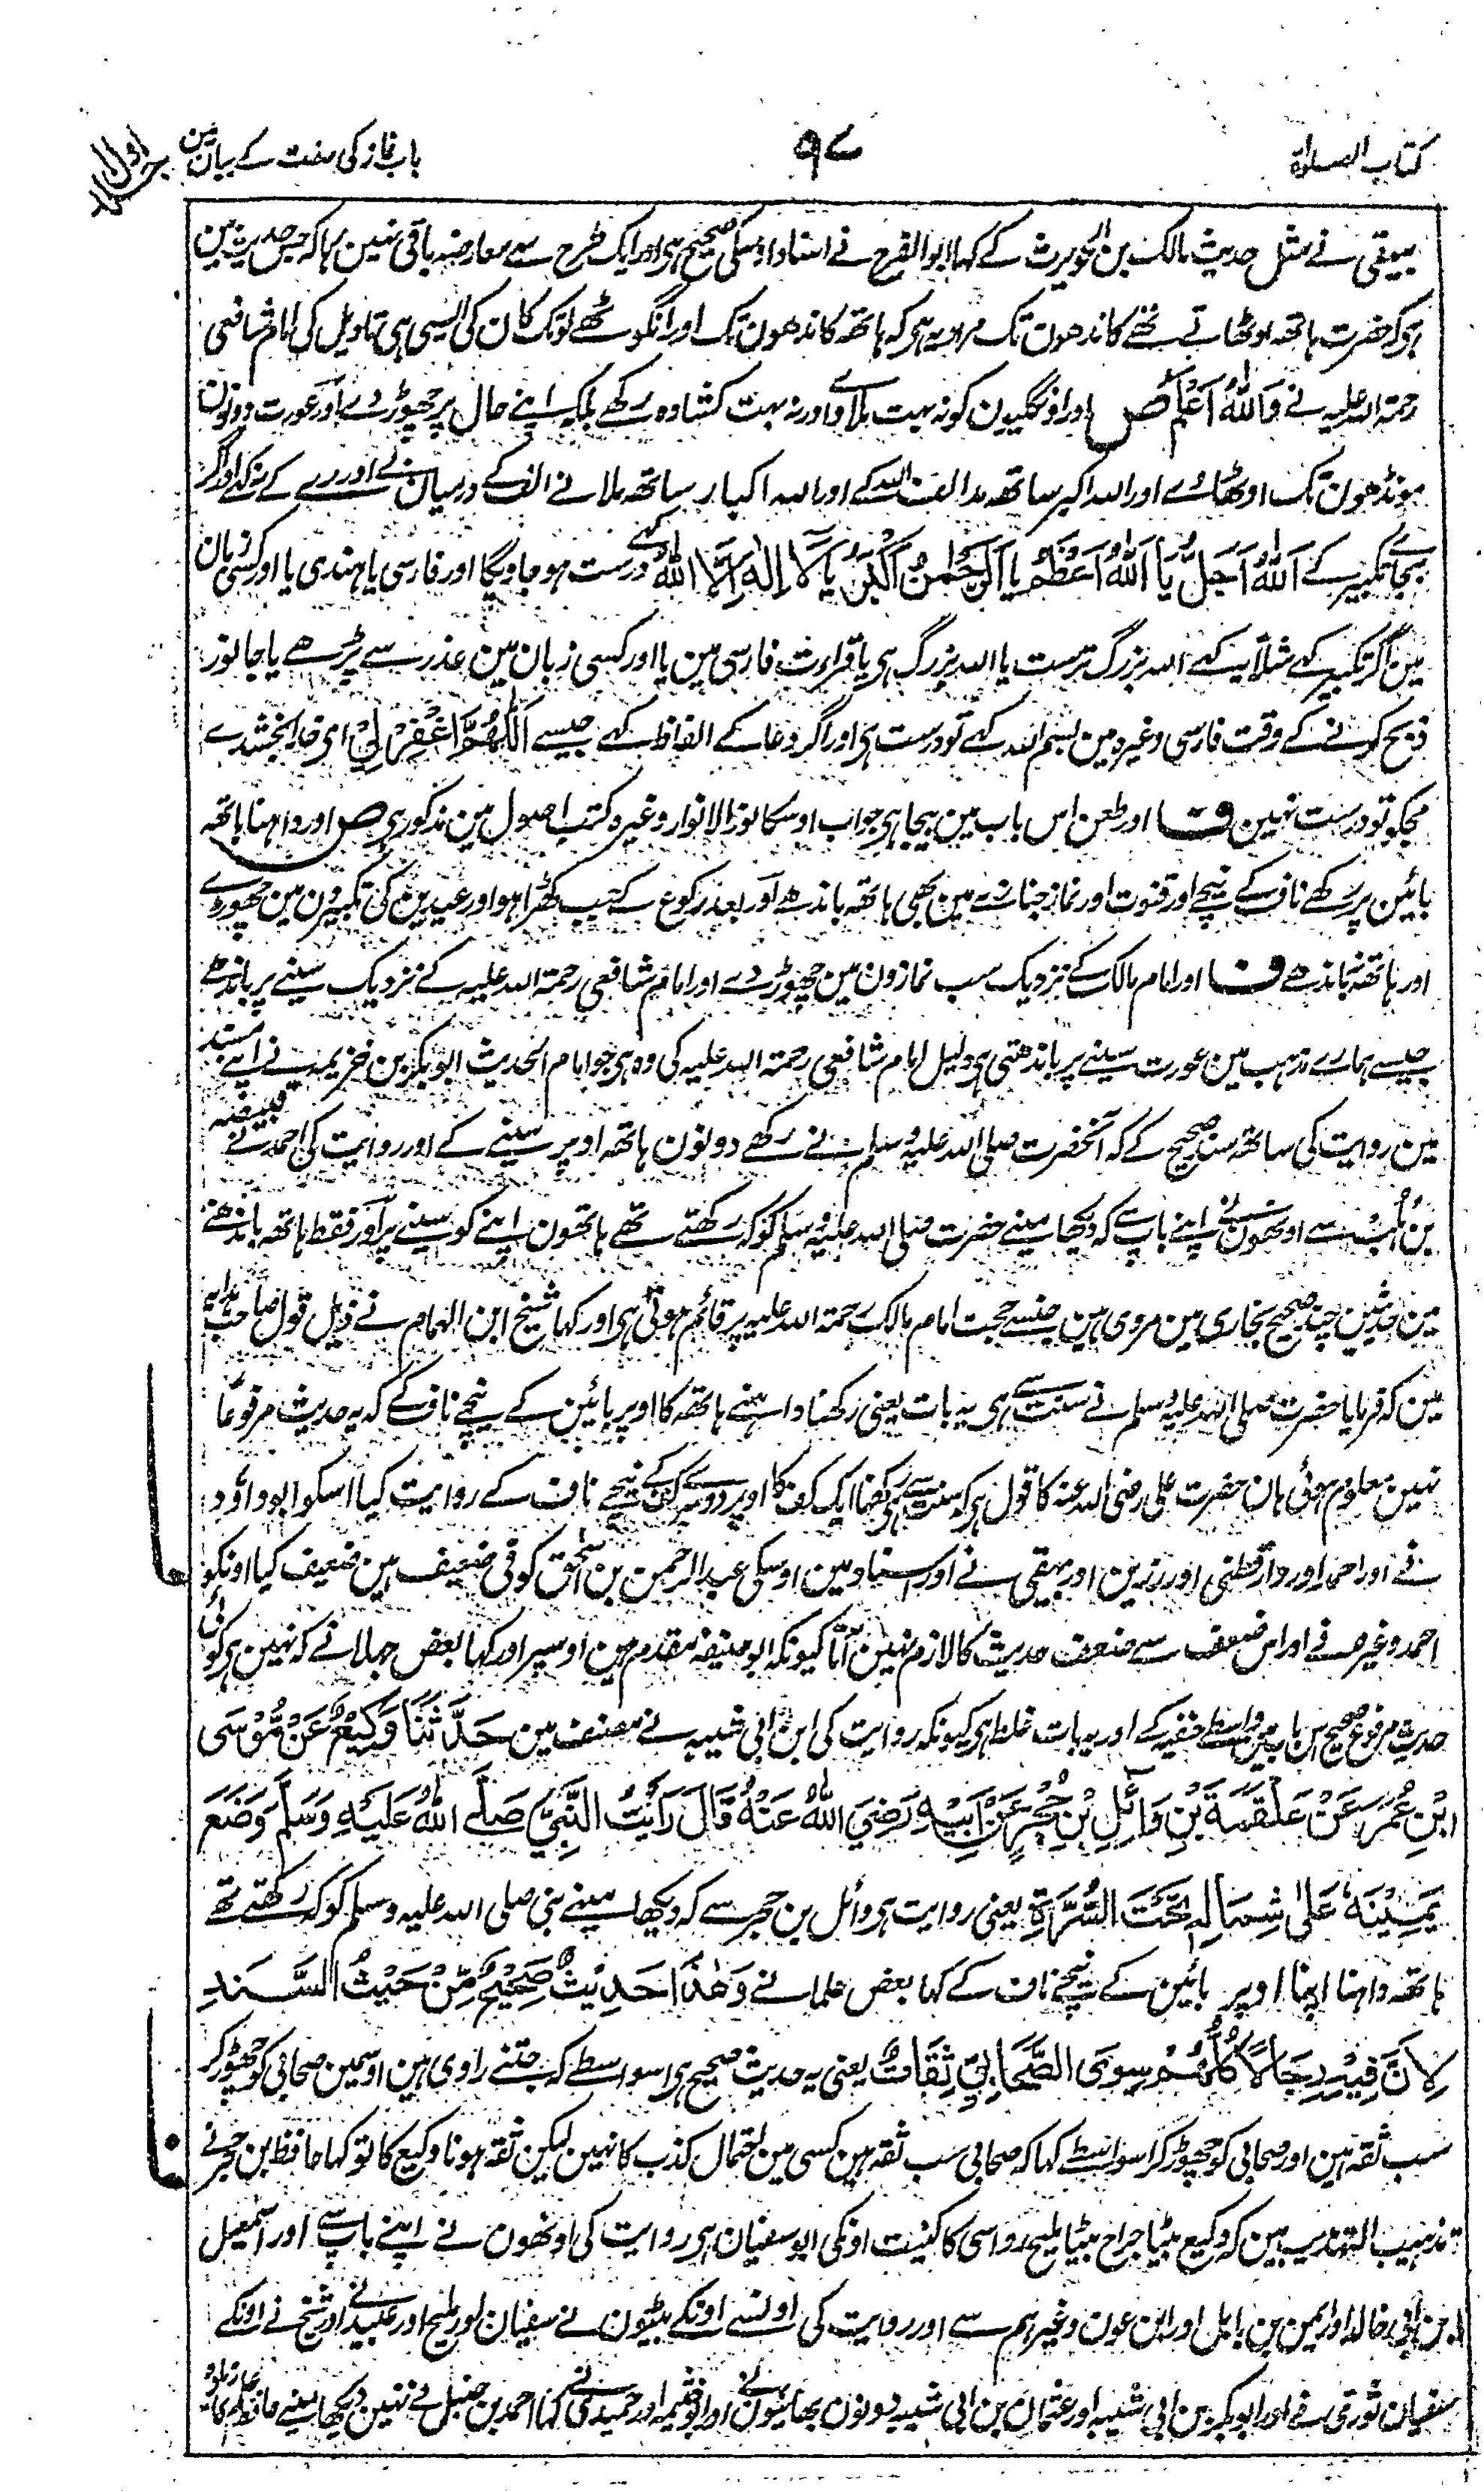 کتاب الصلوٰۃ
۹۷
باب نماز کی صفت کے بیان مین
جلد اول
بیہقی نے مثل حدیث مالک بن الحویرث کے کہا ابو الفرج نے اسناد اوسکی صحیح ہی اور ایک طرح سے معارضہ باقی نہین رہا کہ جس حدیث مین
ہی کہ حضرت ہاتھ اوٹھاتے تھے کاندھون تک مراد یہ ہی کہ ہاتھ کاندھون تک اور انگوٹھے لو تک کان کی ایسی ہی تاویل کی امام شافعی
رحمۃ اللہ علیہ نے وَاللّٰهُ اَعْلَمُ ص اور اونگلیون کو نہ بہت ملاوے اور نہ بہت کشادہ رکھے بلکہ اپنے حال پر چھوڑ دے اور عورت دونون
مونڈھون تک اوٹھاوے اور اللہ اکبر ساتھ مد الف اللہ کے اور اللہ اکبار ساتھ ملانے الف کے درمیان بے اور رے کے نہ کہے اور اگر
بجائے تکبیر کے اَللّٰهُ اَجَلُّ یَا اَللّٰهُ اَعْظَمُ یا اَلرَّحْمٰنُ اَکْبَرُ یا لَا اِلٰهَ اِلَّا اللّٰهُ کہے درست ہو جاویگا اور فارسی یا ہندی یا اور کسی زبان
مین اگر تکبیر کہے مثلاً یہ کہے اللہ بزرگ ترست یا اللہ بزرگ ہی یا قراءت فارسی مین یا اور کسی زبان مین عذر سے پڑھے یا جانور
ذبح کرنے کے وقت فارسی وغیرہ مین بسم اللہ کہے تو درست ہی اور اگر دعا کے الفاظ کہے جیسے اَللّٰهُمَّ اغْفِرْ لِیْ ای خدا بخشدے
مجکو تو درست نہین ف اور طعن اس باب مین بیجا ہی جواب اوسکا نور الانوار وغیرہ کتب اصول مین مذکور ہی ص اور داہنا ہاتھ
بائین پر رکھے ناف کے نیچے اور قنوت اور نماز جنازے مین بھی ہاتھ باندھے اور بعد رکوع کے جب کھڑا ہو اور عیدین کی تکبیرون مین چھوڑے
اور ہاتھ نہ باندھے ف اور امام مالک کے نزدیک سب نمازون مین چھوڑ دے اور امام شافعی رحمۃ اللہ علیہ کے نزدیک سینے پر باندھے
جیسے ہمارے مذہب مین عورت سینے پر باندھتی ہی دلیل امام شافعی رحمۃ اللہ علیہ کی وہ ہی جو امام الحدیث ابو بکر بن خزیمہ نے اپنے مسند
مین روایت کی ساتھ سند صحیح کے کہ آنحضرت صلی اللہ علیہ وسلم نے رکھے دونون ہاتھ اوپر سینے کے اور روایت کی احمد نے قبیصہ
بن ہُلب سے اونھون نے اپنے باپ سے کہ دیکھا مینے حضرت صلی اللہ علیہ وسلم کو کہ رکھتے تھے ہاتھون اپنے کو سینے پر اور فقط ہاتھ باندھنے
مین حدیثین چند صحیح بخاری مین مروی ہین جنسے حجت امام مالک رحمۃ اللہ علیہ پر قائم ہوتی ہی اور کہا شیخ ابن الہمام نے ذیل قول صاحب ہدایہ
مین کہ فرمایا حضرت صلی اللہ علیہ وسلم نے سنت سے ہی یہ بات یعنی رکھنا داہنے ہاتھ کا اوپر بائین کے نیچے ناف کے کہ یہ حدیث مرفوعًا
نہین معلوم ہوئی ہان حضرت علی رضی اللہ عنہ کا قول ہی کہ سنت سے ہی رکھنا ایک کف کا اوپر دوسرے کے نیچے ناف کے روایت کیا اسکو ابو داؤد
نے اور احمد اور دارقطنی اور رزین اور بیہقی نے اور اسناد مین اوسکی عبد الرحمن بن اسحٰق کوفی ضعیف ہین ضعیف کیا اونکو
احمد وغیرہ نے اور اس ضعف سے ضعف حدیث کا لازم نہین آتا کیونکہ ابو حنیفہ مقدم ہین اوسپر اور کہا بعض جہلا نے کہ نہین ہی کوئی
حدیث مرفوع صحیح اس باب مین واسطے حنفیہ کے اور یہ بات غلط ہی کیونکہ روایت کی ابن ابی شیبہ نے مصنف مین حَدَّثَنَا وَکِیْعٌ عَنْ مُّوْسَی
ابْنِ عُمَرَ عَنْ عَلْقَمَةَ بْنِ وَائِلِ بْنِ حُجْرٍ عَنْ اَبِیْهِ رَضِیَ اللّٰهُ عَنْهُ قَالَ رَاَیْتُ النَّبِیَّ صَلَّے اللّٰهُ عَلَیْهِ وَسَلَّمَ وَضَعَ
یَمِیْنَهٗ عَلٰی شِمَالِهٖ تَحْتَ السُّرَّةِ یعنی روایت ہی وائل بن حجر سے کہ دیکھا مینے نبی صلی اللہ علیہ وسلم کو کہ رکھتے تھے
ہاتھ داہنا اپنا اوپر بائین کے نیچے ناف کے کہا بعض علما نے وَهٰذَا حَدِیْثٌ صَحِیْحٌ مِّنْ حَیْثُ السَّنَدِ
لِاَنَّ فِیْهِ رِجَالًا کُلُّهُمْ سِوَی الصَّحَابِیِّ ثِقَاتٌ یعنی یہ حدیث صحیح ہی اسواسطے کہ جتنے راوی ہین اوسمین صحابی کو چھوڑ کر
سب ثقہ ہین اور صحابی کو چھوڑ کر اسواسطے کہا کہ صحابی سب ثقہ ہین کسی مین احتمال کذب کا نہین لیکن ثقہ ہونا وکیع کا تو کہا حافظ بن حجر نے
تذہیب التہذیب مین کہ وکیع بیٹا جراح بیٹا ملیح رواسی کا کنیت اونکی ابو سفیان ہی روایت کی اونھون نے اپنے باپ سے اور اسمعیل
بن ابی خالد اور ایمن بن نابل اور ابن عون وغیرہم سے اور روایت کی اونسے اونکے بیٹیون نے سفیان اور ملیح اور عبید نے اور شیخ نے اونکے
سفیان ثوری نے اور ابو بکر بن ابی شیبہ اور عثمان بن ابی شیبہ دونون بھائیون نے اور ابو خیثمہ اور حمیدی نے کہا احمد بن حنبل نے نہین دیکھا مینے